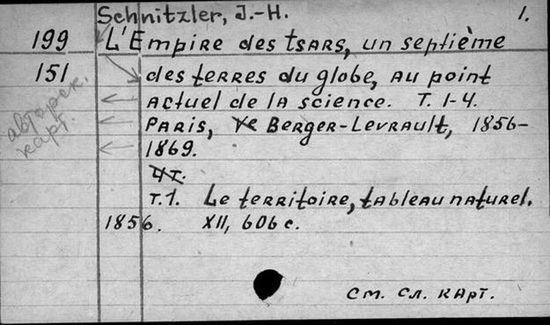 Schnitzler, J.-H. 1.
199 L'Empire des tsars, un septième
151 des terres du globe, au point
actuel de la science. T. 1-4.
Paris, Ve Berger-Levrault, 1856-
1869.
4т.
T.1. Le territoire, tableau naturel.
1856. XII, 606 с.
авторек.
карт.
см. сл. карт.